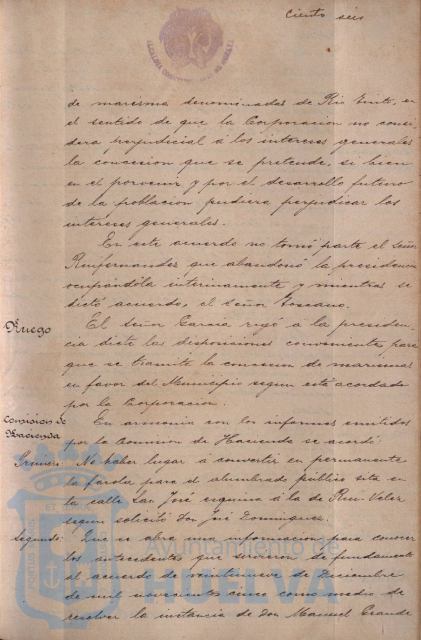 Ciento seis
de marisma denominadas de Rio Tinto, en
el sentido de que la Corporacion no consi-
dera perjudicial á los intereses generales
la concesion que se pretende, si bien
en el porvenir y por el desarrollo futuro
de la poblacion pudiera perjudicar los
intereses generales.
En este acuerdo no tomó parte el Señor
Ruifernandez que abandonó la presidencia
ocupandola interinamente y mientras se
dictó acuerdo, el Señor Toscano.
Ruego
El Señor Garcia rogó á la presiden-
cia dicte las disposiciones convenientes para
que se tramite la concesion de marismas
en favor del Municipio segun está acordado
por la Corporacion.
Comision de
Hacienda
En armonia con los informes emitidos
por la Comision de Hacienda se acordó
Primero: No haber lugar á convertir en permanente
la farola para el alumbrado público sita en
la calle San José esquina á la de Rui Velez
segun solicitó Don José Dominguez.
Segundo: Que se abra una informacion para conocer
los antecedentes que sirvieron de fundamento
al acuerdo de veintinueve de Diciembre
de mil novecientos cinco como medio de
resolver la instancia de Don Manuel Grande
Ayuntamiento de
HUELVA